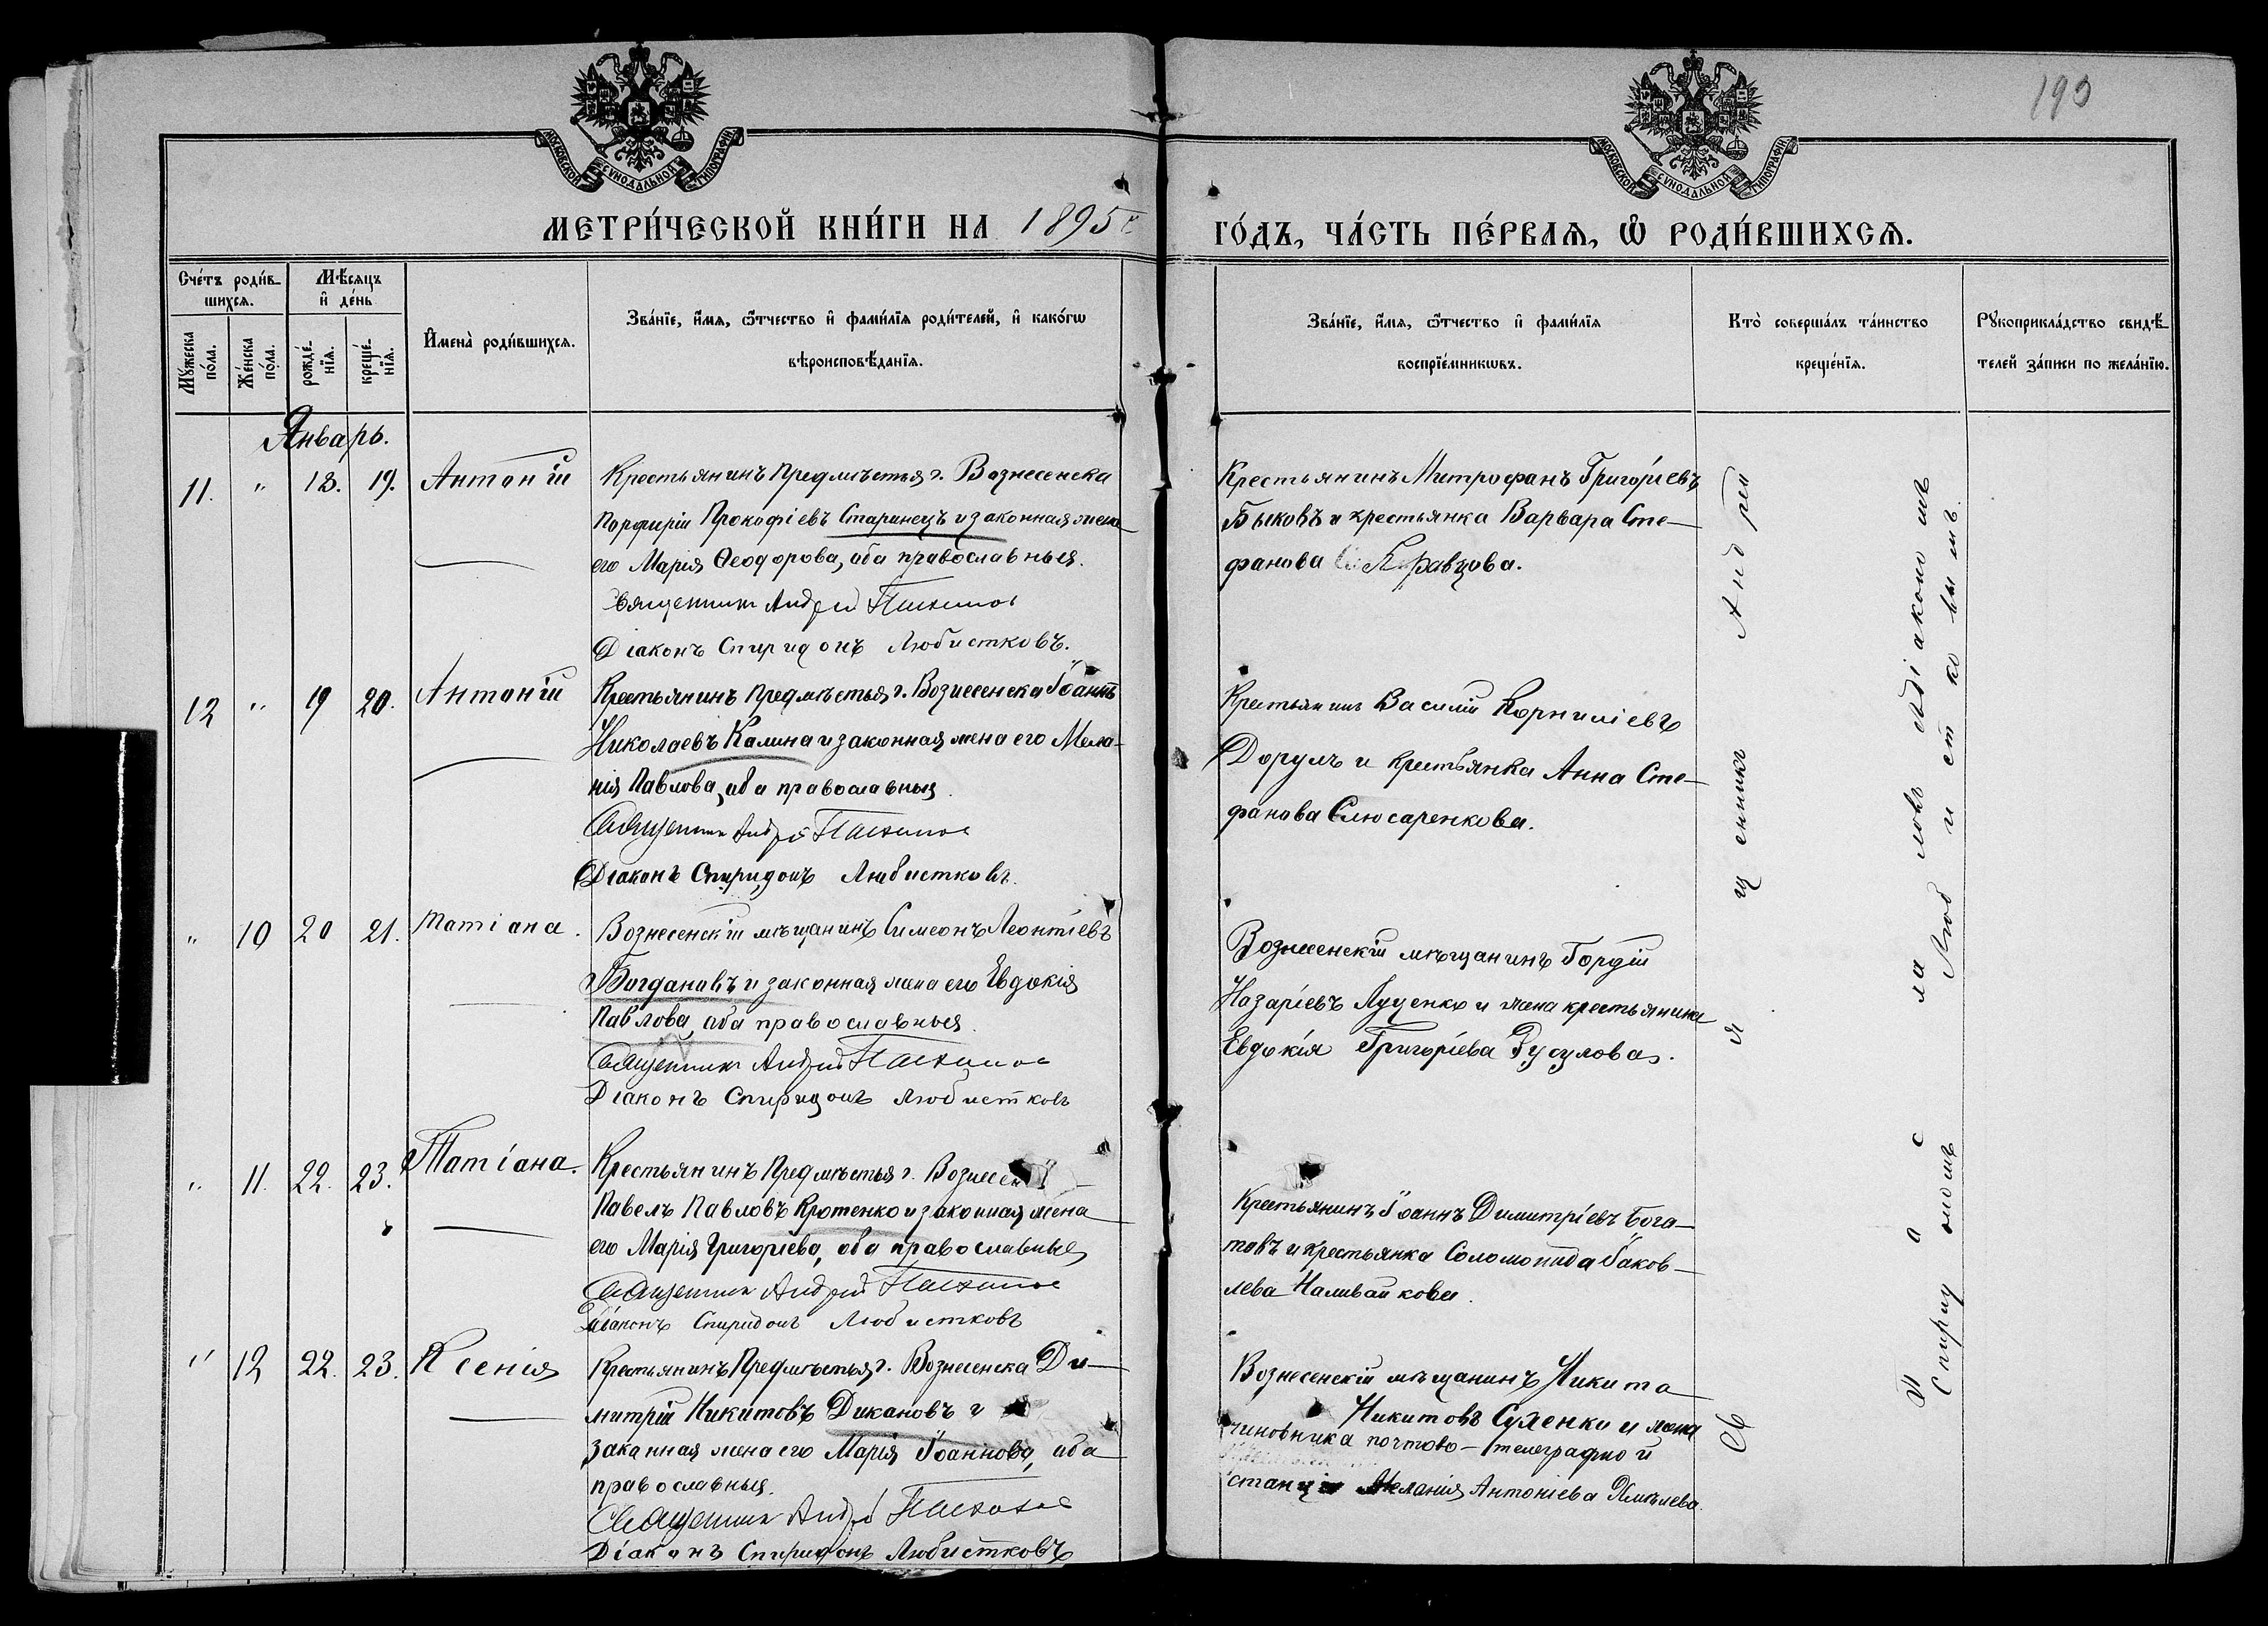 190
МОСКОВСКОЙ СѴНОДАЛЬНОЙ ТИПОГРАФІИ
МОСКОВСКОЙ СѴНОДАЛЬНОЙ ТИПОГРАФІИ
МЕТРИ́ЧЕСКОЙ КНИ́ГИ НА 1895
ГО́ДЪ, ЧА́СТЬ ПЕ́РВАѦ, Ѡ РОДИ́ВШИХСѦ.
Сче́тъ роди́в-
шихсѧ.
Мѣ́сѧцъ
и де́нь
Мꙋ́жеска
по́ла.
Же́нска
по́ла.
рожде́-
нїѧ.
креще́-
нїѧ.
И҆мена̀ роди́вшихсѧ.
Зва́нїе, и҆́мѧ, ѻ҆́тчество и҆ фами́лїѧ роди́телей, и҆ како́гѡ
вѣроисповѣ́данїѧ.
Зва́нїе, и҆́мѧ, ѻ҆́тчество и҆ фами́лїѧ
воспрїе́мникѡвъ.
Кто̀ соверша́лъ та́инство
креще́нїѧ.
Рꙋкоприкла́дство свидѣ́-
телей за́писи по жела́нїю.
Январь.
11. " 18. 19. Антоній
Крестьянинъ Предмѣстья г. Вознесенска
Порфирій Прокофіевъ Старинецъ и законная жена
его Марія Ѳеодорова, оба православные.
Священникъ Андрей
Діаконъ Спиридонъ Любистковъ.
Крестьянинъ Митрофанъ Григоріевъ
Быковъ и крестьянка Варвара Сте-
фанова Кравцова.
12 " 19 20. Антоній
Крестьянинъ Предмѣстья г. Вознесенска Іоаннъ
Николаевъ Калина и законная жена его Мела-
нія Павлова, оба православные.
Священникъ Андрей
Діаконъ Спиридонъ Любистковъ.
Крестьянинъ Василій Корниліевъ
Дорулъ и крестьянка Анна Сте-
фанова Слюсаренкова.
" 10 20 21. Татіана.
Вознесенскій мѣщанинъ Симеонъ Леонтіевъ
Богдановъ и законная жена его Евдокія
Павлова, оба православные.
Священникъ Андрей
Діаконъ Спиридонъ Любистковъ
Вознесенскій мѣщанинъ Гордій
Назаріевъ Луценко и жена крестьянина
Евдокія Григоріева Русулова.
" 11. 22. 23. Татіана.
Крестьянинъ Предмѣстья г.
Павелъ Павловъ Кротенко и законная жена
его Марія Григоріева, оба православные
Священникъ Андрей
Діаконъ Спиридонъ Любистковъ
Крестьянинъ Іоаннъ Димитріевъ Бога-
товъ и крестьянка Соломонида Іаков-
лева Наливайкова.
" 12 22. 23. Ксенія
Крестьянинъ Предмѣстья г. Вознесенска Ди-
митрій Никитовъ Дикановъ и
законная жена его Марія Іоаннова, оба
православные.
Священникъ Андрей
Діаконъ Спиридонъ Любистковъ
Вознесенскій мѣщанинъ Никита
Никитовъ Суженко и жена
чиновника почтово-телеграфной
станціи Меланія Антоніева Хмѣлева.
Священникъ Андрей
съ діакономъ
Спиридономъ Любистковымъ.